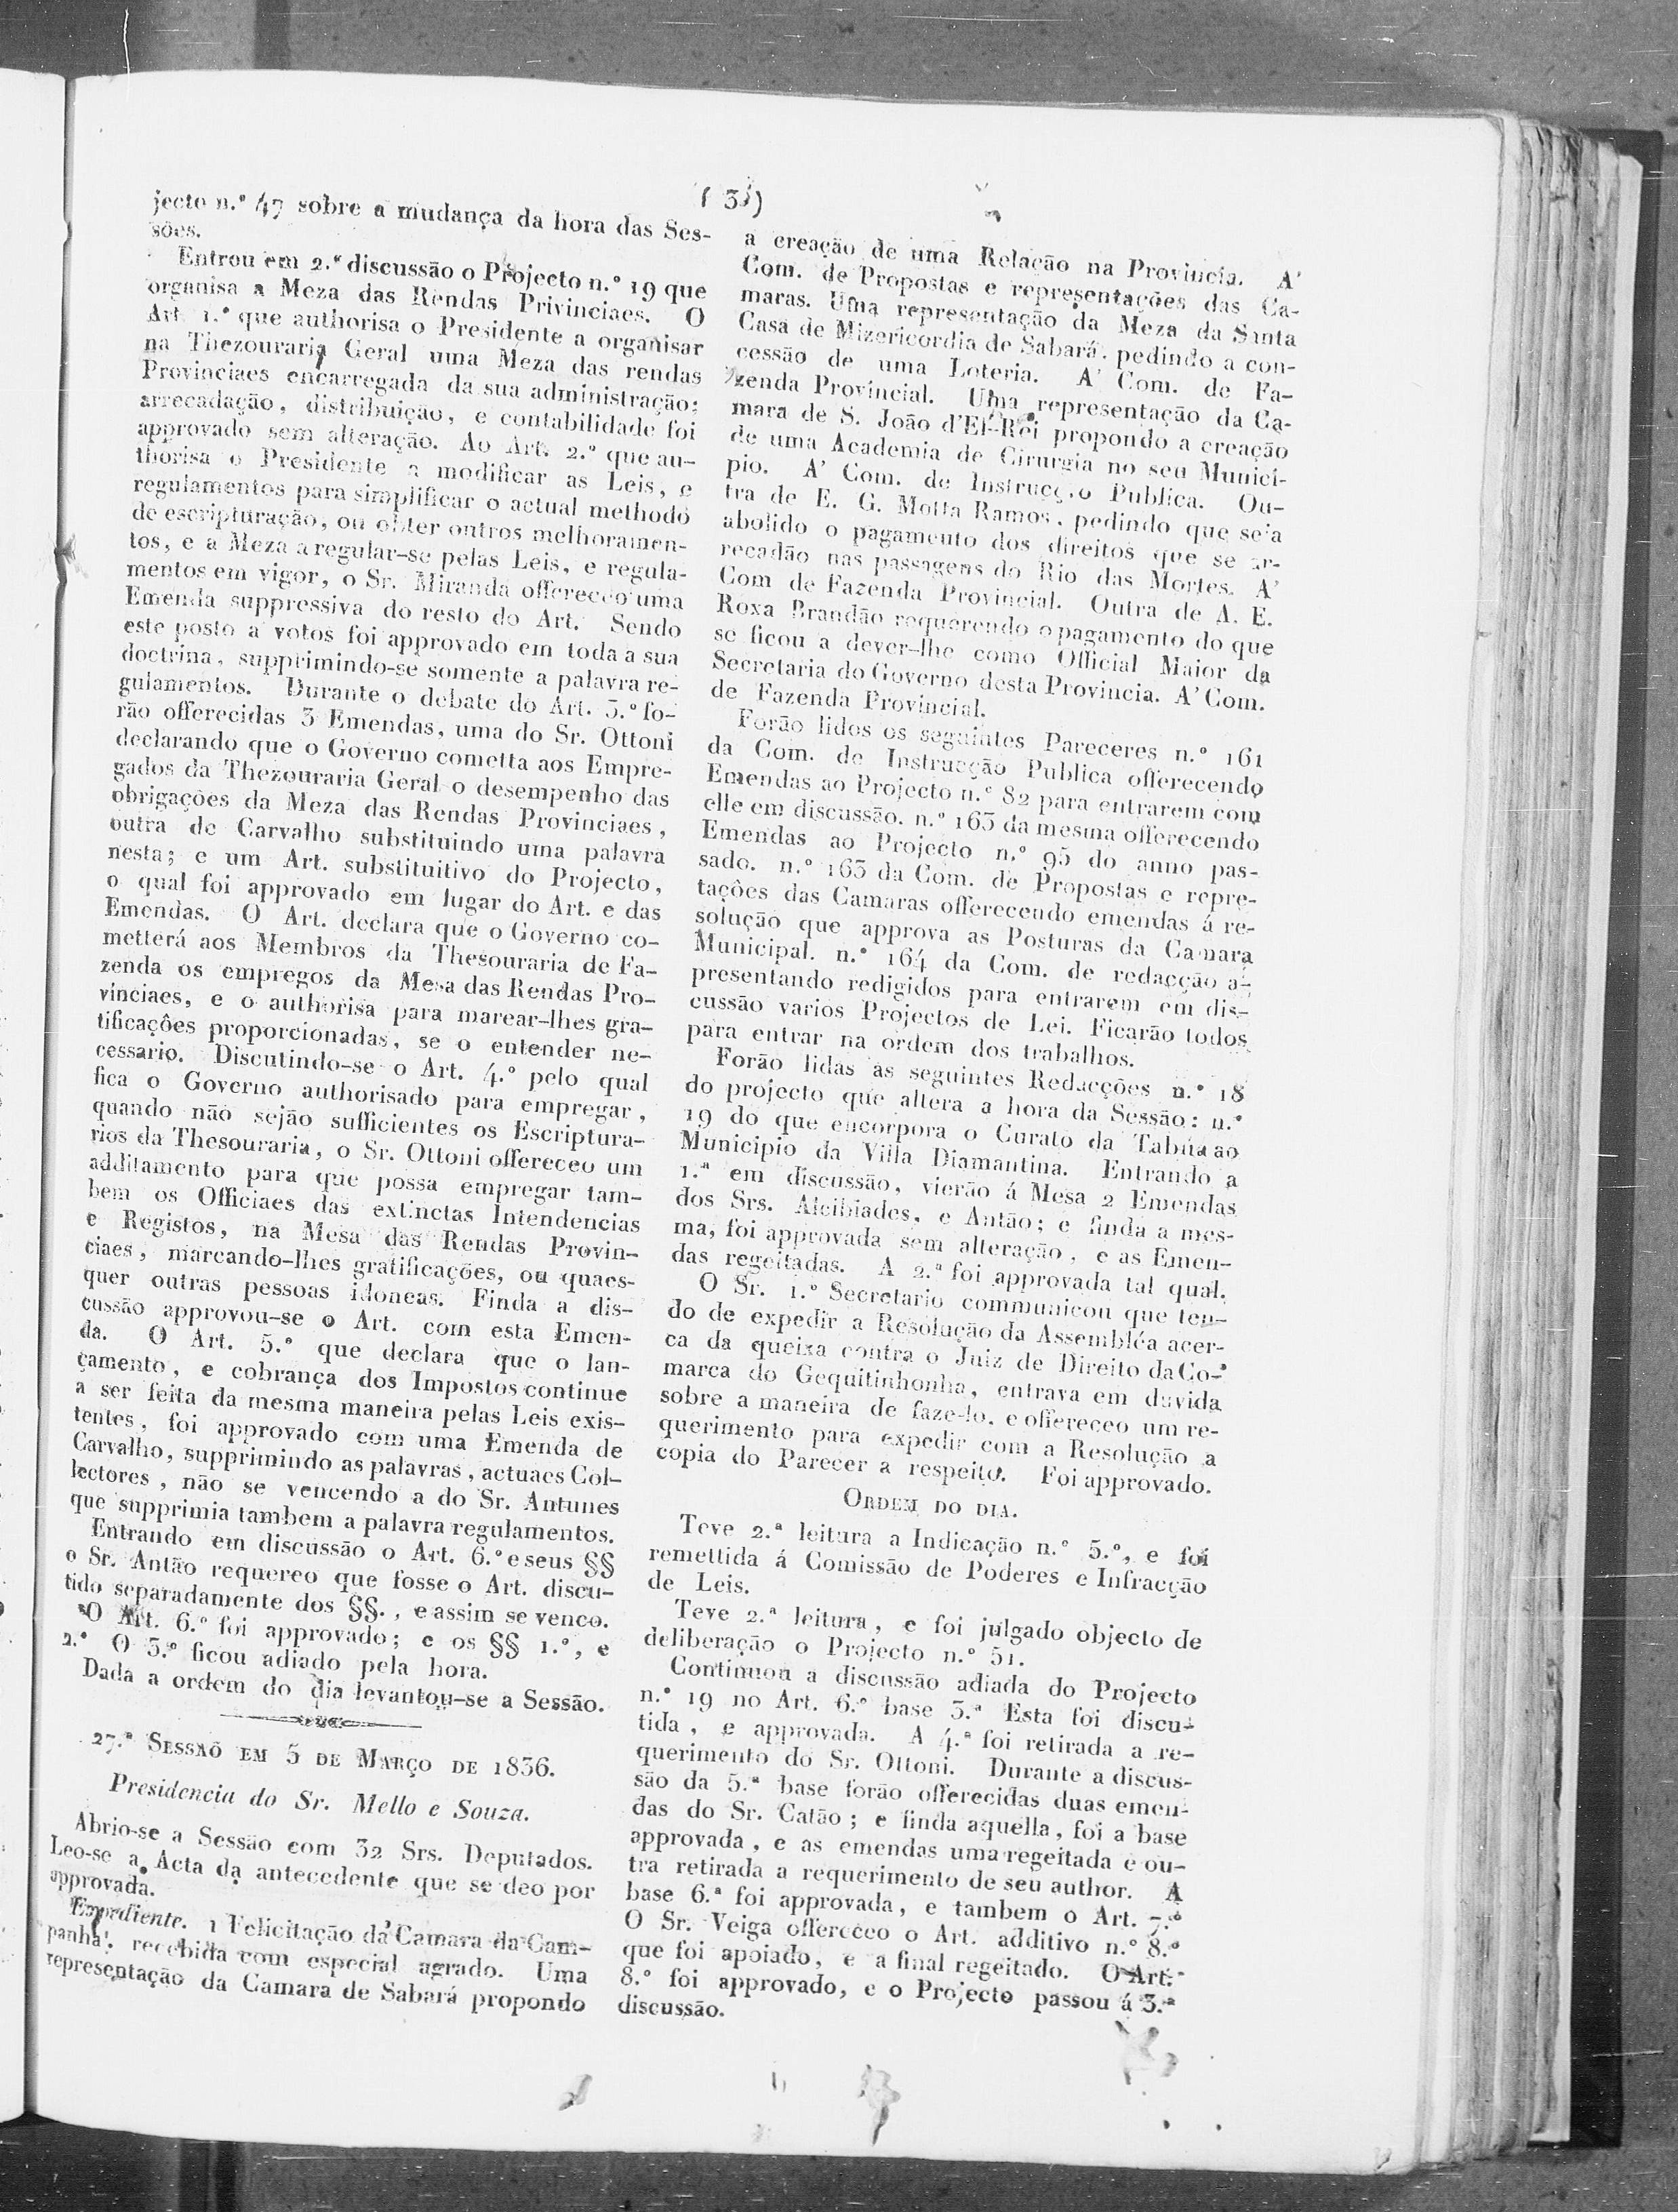 ( 3 )
jecto n.º 47 sobre a mudança da hora das Ses-
sões.
Entrou em 2.ª discussão o Projecto n.º 19 que
organisa a Meza das Rendas Privinciaes. O
Art. 1.º que authorisa o Presidente a organisar
na Thezouraria Geral uma Meza das rendas
Provinciaes encarregada da sua administração;
arrecadação, distribuição, e contabilidade foi
approvado sem alteração. Ao Art. 2.º que au-
thorisa o Presidente a modificar as Leis, e
regulamentos para simplificar o actual methodo
de escripturação, ou obter outros melhoramen-
tos, e a Meza a regular-se pelas Leis, e regula-
mentos em vigor, o Sr. Miranda offereceo uma
Emenda suppressiva do resto do Art. Sendo
este posto a votos foi approvado em toda a sua
doctrina, supprimindo-se somente a palavra re-
gulamentos. Durante o debate do Art. 3.º fo-
rão offerecidas 3 Emendas, uma do Sr. Ottoni
declarando que o Governo cometta aos Empre-
gados da Thezouraria Geral o desempenho das
obrigações da Meza das Rendas Provinciaes,
outra de Carvalho substituindo uma palavra
nesta; e um Art. substituitivo do Projecto,
o qual foi approvado em lugar do Art. e das
Emendas. O Art. declara que o Governo co-
metterá aos Membros da Thesouraria de Fa-
zenda os empregos da Mesa das Rendas Pro-
vinciaes, e o authorisa para marcar-lhes gra-
tificações proporcionadas, se o entender ne-
cessario. Discutindo-se o Art. 4.º pelo qual
fica o Governo authorisado para empregar,
quando não sejão sufficientes os Escriptura-
rios da Thesouraria, o Sr. Ottoni offereceo um
additamento para que possa empregar tam-
bem os Officiaes das extinctas Intendencias
e Registos, na Mesa das Rendas Provin-
ciaes, marcando-lhes gratificações, ou quaes-
quer outras pessoas idoneas. Finda a dis-
cussão approvou-se o Art. com esta Emen-
da. O Art. 5.º que declara que o lan-
çamento, e cobrança dos Impostos continue
a ser feita da mesma maneira pelas Leis exis-
tentes, foi approvado com uma Emenda de
Carvalho, supprimindo as palavras, actuaes Col-
lectores, não se vencendo a do Sr. Antunes
que supprimia tambem a palavra regulamentos.
Entrando em discussão o Art. 6.º e seus §§
o Sr. Antão requereo que fosse o Art. discu-
tido separadamente dos §§., e assim se venco.
O Art. 6.º foi approvado; e os §§ 1.º, e
2.º O 3.º ficou adiado pela hora.
Dada a ordem do dia levantou-se a Sessão.
27.ª SESSAÕ EM 5 DE MARÇO DE 1836.
Presidencia do Sr. Mello e Souza.
Abrio-se a Sessão com 32 Srs. Deputados.
Leo-se a Acta da antecedente que se deo por
approvada.
Expediente. 1 Felicitação da Camara da Cam-
panha, recebida com especial agrado. Uma
representação da Camara de Sabará propondo
a creação de uma Relação na Provincia. A'
Com. de Propostas e representações das Ca-
maras. Uma representação da Meza da Santa
Casa de Mizericordia de Sabará, pedindo a con-
cessão de uma Loteria. A' Com. de Fa-
zenda Provincial. Uma representação da Ca-
mara de S. João d'El-Rei propondo a creação
de uma Academia de Cirurgia no seu Munici-
pio. A' Com. de Instrucção Publica. Ou-
tra de E. G. Motta Ramos, pedindo que seja
abolido o pagamento dos direitos que se ar-
recadão nas passagens do Rio das Mortes. A'
Com de Fazenda Provincial. Outra de A. E.
Roxa Brandão requerendo o pagamento do que
se ficou a dever-lhe como Official Maior da
Secretaria do Governo desta Provincia. A' Com.
de Fazenda Provincial.
Forão lidos os seguintes Pareceres n.º 161
da Com. de Instrucção Publica offerecendo
Emendas ao Projecto n.º 82 para entrarem com
elle em discussão. n.º 163 da mesma offerecendo
Emendas ao Projecto n.º 95 do anno pas-
sado. n.º 163 da Com. de Propostas e repre-
tações das Camaras offerecendo emendas á re-
solução que approva as Posturas da Camara
Municipal. n.º 164 da Com. de redacção a-
presentando redigidos para entrarem em dis-
cussão varios Projectos de Lei. Ficarão todos
para entrar na ordem dos trabalhos.
Forão lidas as seguintes Redacções n.º 18
do projecto que altera a hora da Sessão: n.º
19 do que encorpora o Curato da Tabúa ao
Municipio da Villa Diamantina. Entrando a
1.ª em discussão, vierão á Mesa 2 Emendas
dos Srs. Alcibiades, e Antão; e finda a mes-
ma, foi approvada sem alteração, e as Emen-
das regeitadas. A 2.ª foi approvada tal qual.
O Sr. 1.º Secretario communicou que ten-
do de expedir a Resolução da Assembléa acer-
ca da queixa contra o Juiz de Direito da Co-
marca do Gequitinhonha, entrava em duvida
sobre a maneira de faze-lo, e offereceo um re-
querimento para expedir com a Resolução a
copia do Parecer a respeito. Foi approvado.
ORDEM DO DIA.
Teve 2.ª leitura a Indicação n.º 5.º, e foi
remettida á Comissão de Poderes e Infracção
de Leis.
Teve 2.ª leitura, e foi julgado objecto de
deliberação o Projecto n.º 51.
Continuou a discussão adiada do Projecto
n.º 19 no Art. 6.º base 3.ª Esta foi discu-
tida, e approvada. A 4.ª foi retirada a re-
querimento do Sr. Ottoni. Durante a discus-
são da 5.ª base forão offerecidas duas emen-
das do Sr. Catão; e finda aquella, foi a base
approvada, e as emendas uma regeitada e ou-
tra retirada a requerimento de seu author. A
base 6.ª foi approvada, e tambem o Art. 7.º
O Sr. Veiga offereceo o Art. additivo n.º 8.º
que foi apoiado, e a final regeitado. O Art.
8.º foi approvado, e o Projecto passou á 3.ª
discussão.